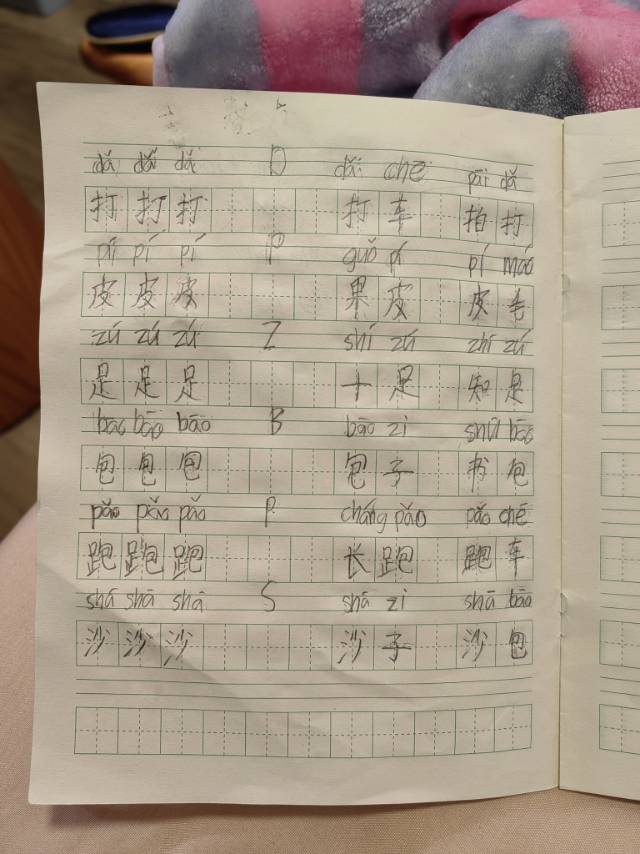 dǎ dǎ dǎ D dǎ chē pāi dǎ
打 打 打 打 车 拍 打
pí pí pí P guǒ pí pí máo
皮 皮 皮 果 皮 皮 毛
zú zú zú Z shí zú zhī zú
足 足 足 十 足 知 足
bāo bāo bāo B bāo zi shū bāo
包 包 包 包 子 书 包
pǎo pǎo pǎo P cháng pǎo pǎo chē
跑 跑 跑 长 跑 跑 车
shā shā shā S shā zi shā bāo
沙 沙 沙 沙 子 沙 包